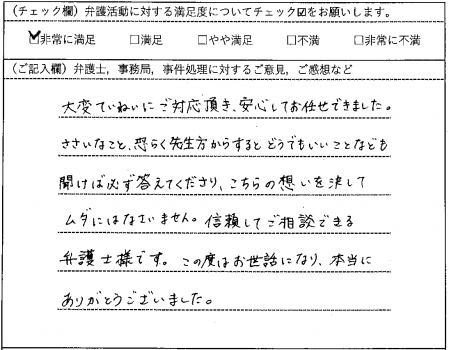 (チェック欄) 弁護活動に対する満足度についてチェック☑をお願いします。
☑非常に満足 □満足 □やや満足 □不満 □非常に不満
(ご記入欄) 弁護士，事務局，事件処理に対するご意見，ご感想など
大変ていねいにご対応頂き、安心してお任せできました。
ささいなこと、恐らく先生方からするとどうでもいいことなども
聞けば必ず答えてくださり、こちらの想いを決して
ムダにはなさいません。信頼してご相談できる
弁護士様です。この度はお世話になり、本当に
ありがとうございました。